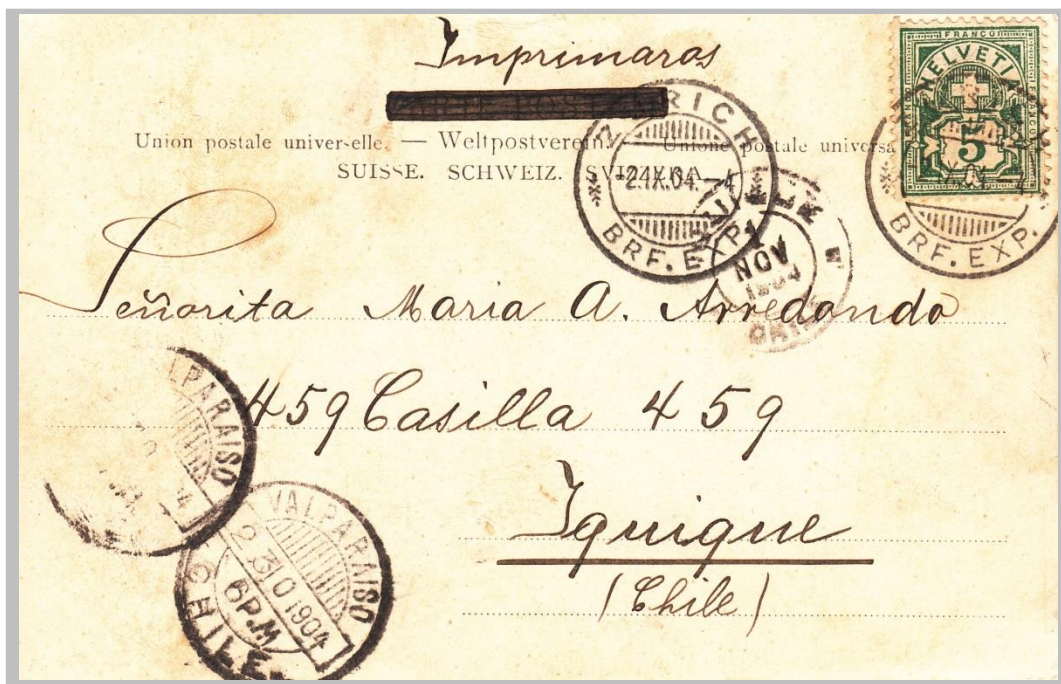 Imprimaros
CARTE POSTALE
Union postale universelle. — Weltpostverein. — Unione postale universa
SUISSE. SCHWEIZ. SVIZZERA.
FRANCO
HELVETIA
5
ZÜRICH
-2.IX.04.-4
BRF. EXP.
BRF. EXP.
1
NOV
1904
Señorita Maria A. Arredondo
459 Casilla 459
Iquique
(Chile)
VALPARAISO
VALPARAISO
23 O 1904
6 P.M
CHILE